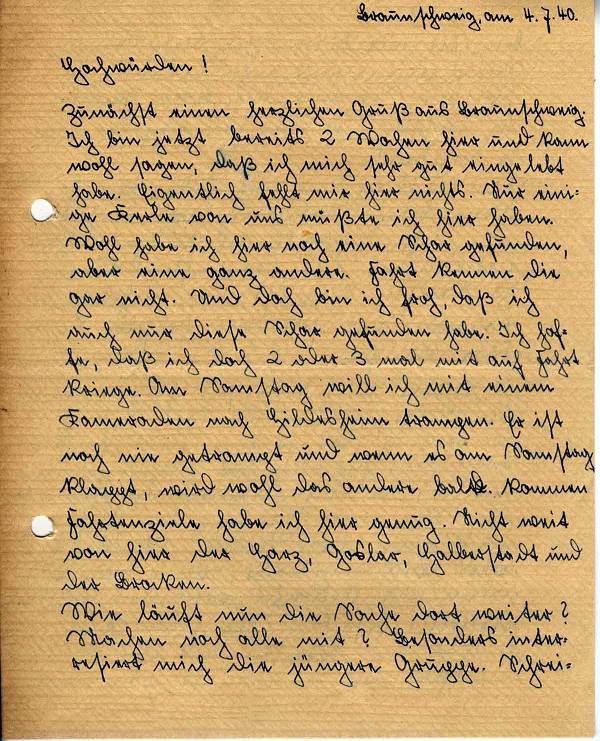 Braunschweig, am 4.7.40.
Hochwürden!
Zunächst einen herzlichen Gruß aus Braunschweig.
Ich bin jetzt bereits 2 Wochen hier und kann
wohl sagen, daß ich mich sehr gut eingelebt
habe. Eigentlich fehlt mir hier nichts. Nur eini-
ge Kerle von uns müßte ich hier haben.
Wohl habe ich hier noch eine Schar gefunden,
aber eine ganz andere. Fahrt kennen die
gar nicht. Und doch bin ich froh, daß ich
auch nur diese Schar gefunden habe. Ich hof-
fe, daß ich doch 2 oder 3 mal mit auf Fahrt
kriege. Am Samstag will ich mit einem
Kameraden nach Hildesheim trampen. Er ist
noch nie getrampt und wenn es am Samstag
klappt, wird wohl das andere bald kommen
Fahrtenziele habe ich hier genug. Nicht weit
von hier der Harz, Goslar, Halberstadt und
der Brocken.
Wie läuft nun die Sache dort weiter?
Machen noch alle mit? Besonders inter-
resiert mich die jüngere Gruppe. Schrei-